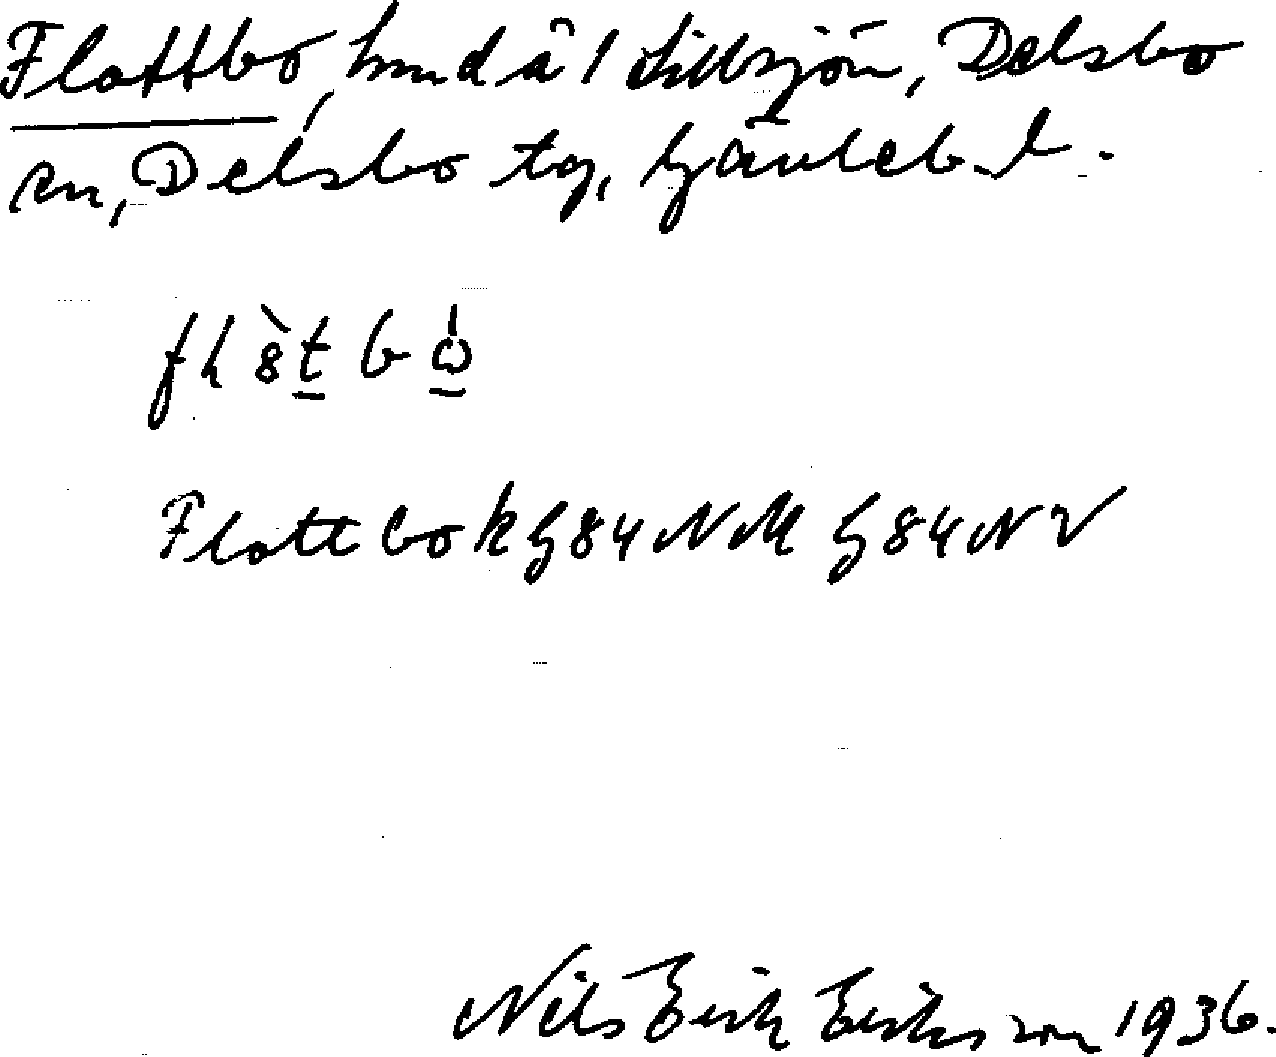 Flattbo, hmd å 1 Lillsjön, Delsbo
sn, Delsbo tg, Gävleb. l.
Flattbo k G 84 NM G 84 NV
Nils Erik Eriksson 1936.